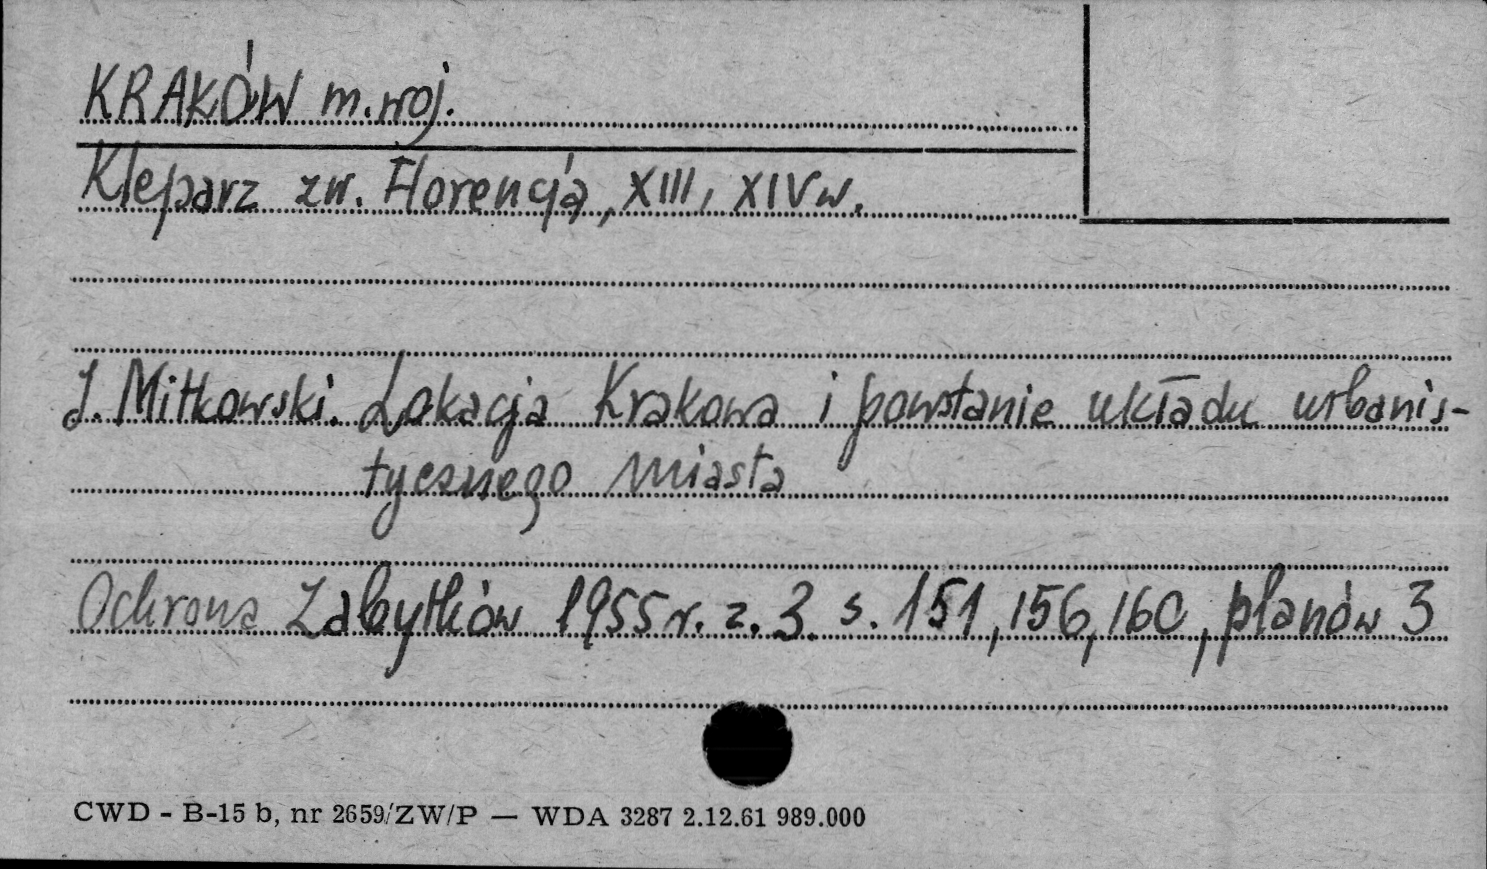 KRAKÓW m. woj.
Kleparz zw. Florencją, XIII, XIV w.
J. Mitkowski. Lokacja Krakowa i powstanie układu urbanis-
tycznego miasta
Ochrona Zabytków 1955 r. z. 3. s. 151, 156, 160, planów 3
CWD - B-15 b, nr 2659/ZW/P — WDA 3287 2.12.61 989.000